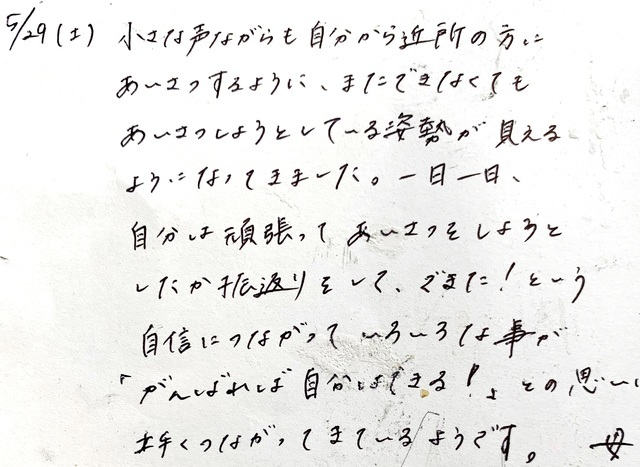 5/29(土) 小さな声ながらも自分から近所の方に
あいさつするように、またできなくても
あいさつしようとしている姿勢が見える
ようになってきました。一日一日、
自分は頑張ってあいさつをしようと
したか振返りをして、できた!という
自信につながっていろいろな事が
「がんばれば自分はできる!」との思いに
上手くつながってきているようです。 母